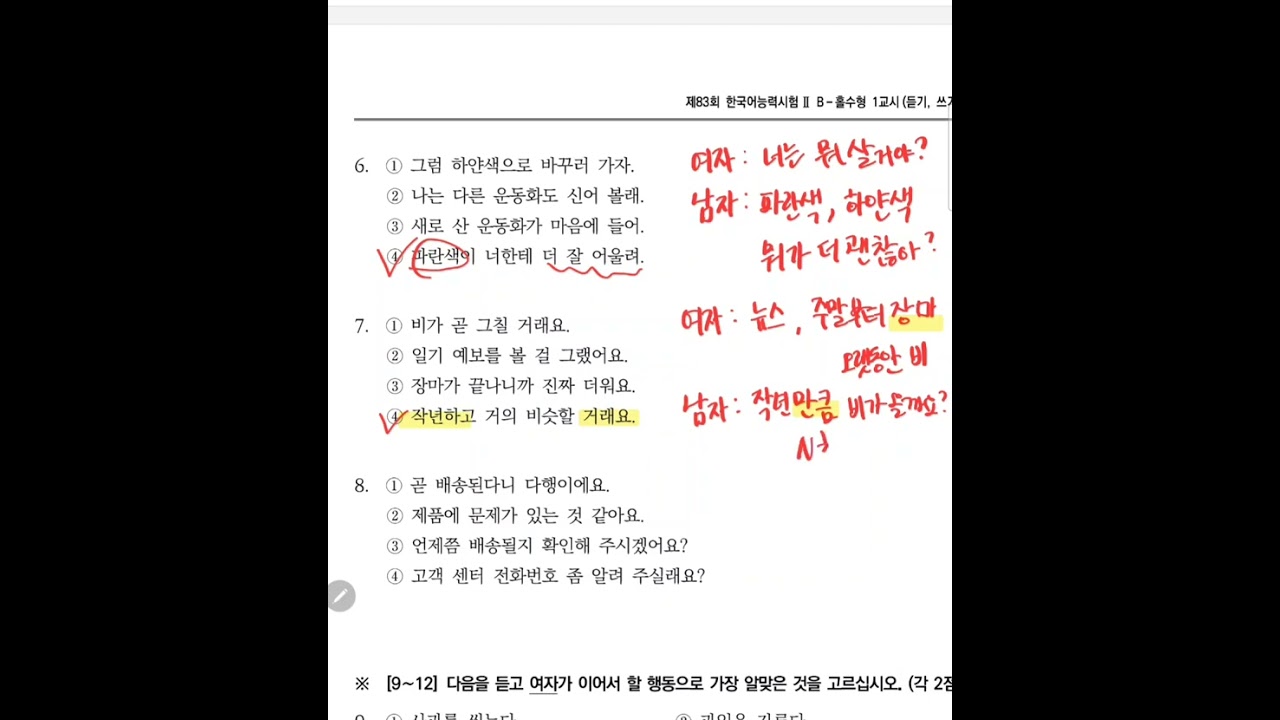 제83회 한국어능력시험 Ⅱ B-홀수형 1교시 (듣기, 쓰기
6. ① 그럼 하얀색으로 바꾸러 가자.
② 나는 다른 운동화도 신어 볼래.
③ 새로 산 운동화가 마음에 들어.
④ 파란색이 너한테 더 잘 어울려.
여자 : 너는 뭐 살거야?
남자 : 파란색, 하얀색
뭐가 더 괜찮아?
7. ① 비가 곧 그칠 거래요.
② 일기 예보를 볼 걸 그랬어요.
③ 장마가 끝나니까 진짜 더워요.
④ 작년하고 거의 비슷할 거래요.
여자 : 뉴스, 주말부터 장마
오랫동안 비
남자 : 작년만큼 비가 올까요?
N
8. ① 곧 배송된다니 다행이에요.
② 제품에 문제가 있는 것 같아요.
③ 언제쯤 배송될지 확인해 주시겠어요?
④ 고객 센터 전화번호 좀 알려 주실래요?
※ [9~12] 다음을 듣고 여자가 이어서 할 행동으로 가장 알맞은 것을 고르십시오. (각 2점